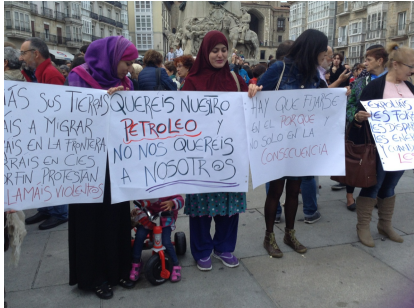 ÁS SUS TIERRAS
ÁIS A MIGRAR
ÁIS EN LA FRONTERA
RRAIS EN CIES
PROTESTAN
LLAMAIS VIOLENTOS
QUEREIS NUESTRO
PETROLEO Y
NO NOS QUEREIS
A NOSOTR@S
HAY QUE FIJARSE
EN EL PORQUE Y
NO SOLO EN LA
CONSECUENCIA